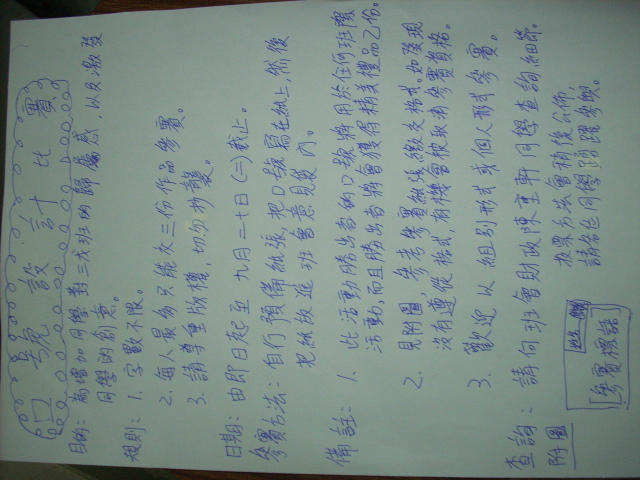 口號設計比賽
目的: 為增加同學對三戊班的歸屬感,以及激發
同學的創意。
規則: 1. 字數不限。
2. 每人最多只能交三份作品參賽。
3. 請尊重版權,切勿抄襲。
日期: 由即日起至九月二十日(二)截止。
參賽方法: 自行預備紙張,把口號寫在紙上,然後
把紙放進班會意見收 內。
備註: 1. 此活動勝出者的口號將用於任何班際
活動,而且勝出者將會獲得精美禮品乙份。
2. 見附圖 參考參賽紙張繳交格式。如發現
沒有遵從格式,有機會被取消參賽資格。
3. 歡迎以組別形式或個人形式參賽。
查詢: 請向班會財政陳重軒同學查詢細節。
投票方法會稍後公佈,
請各位同學踴躍參與。
附圖
[參賽標語]